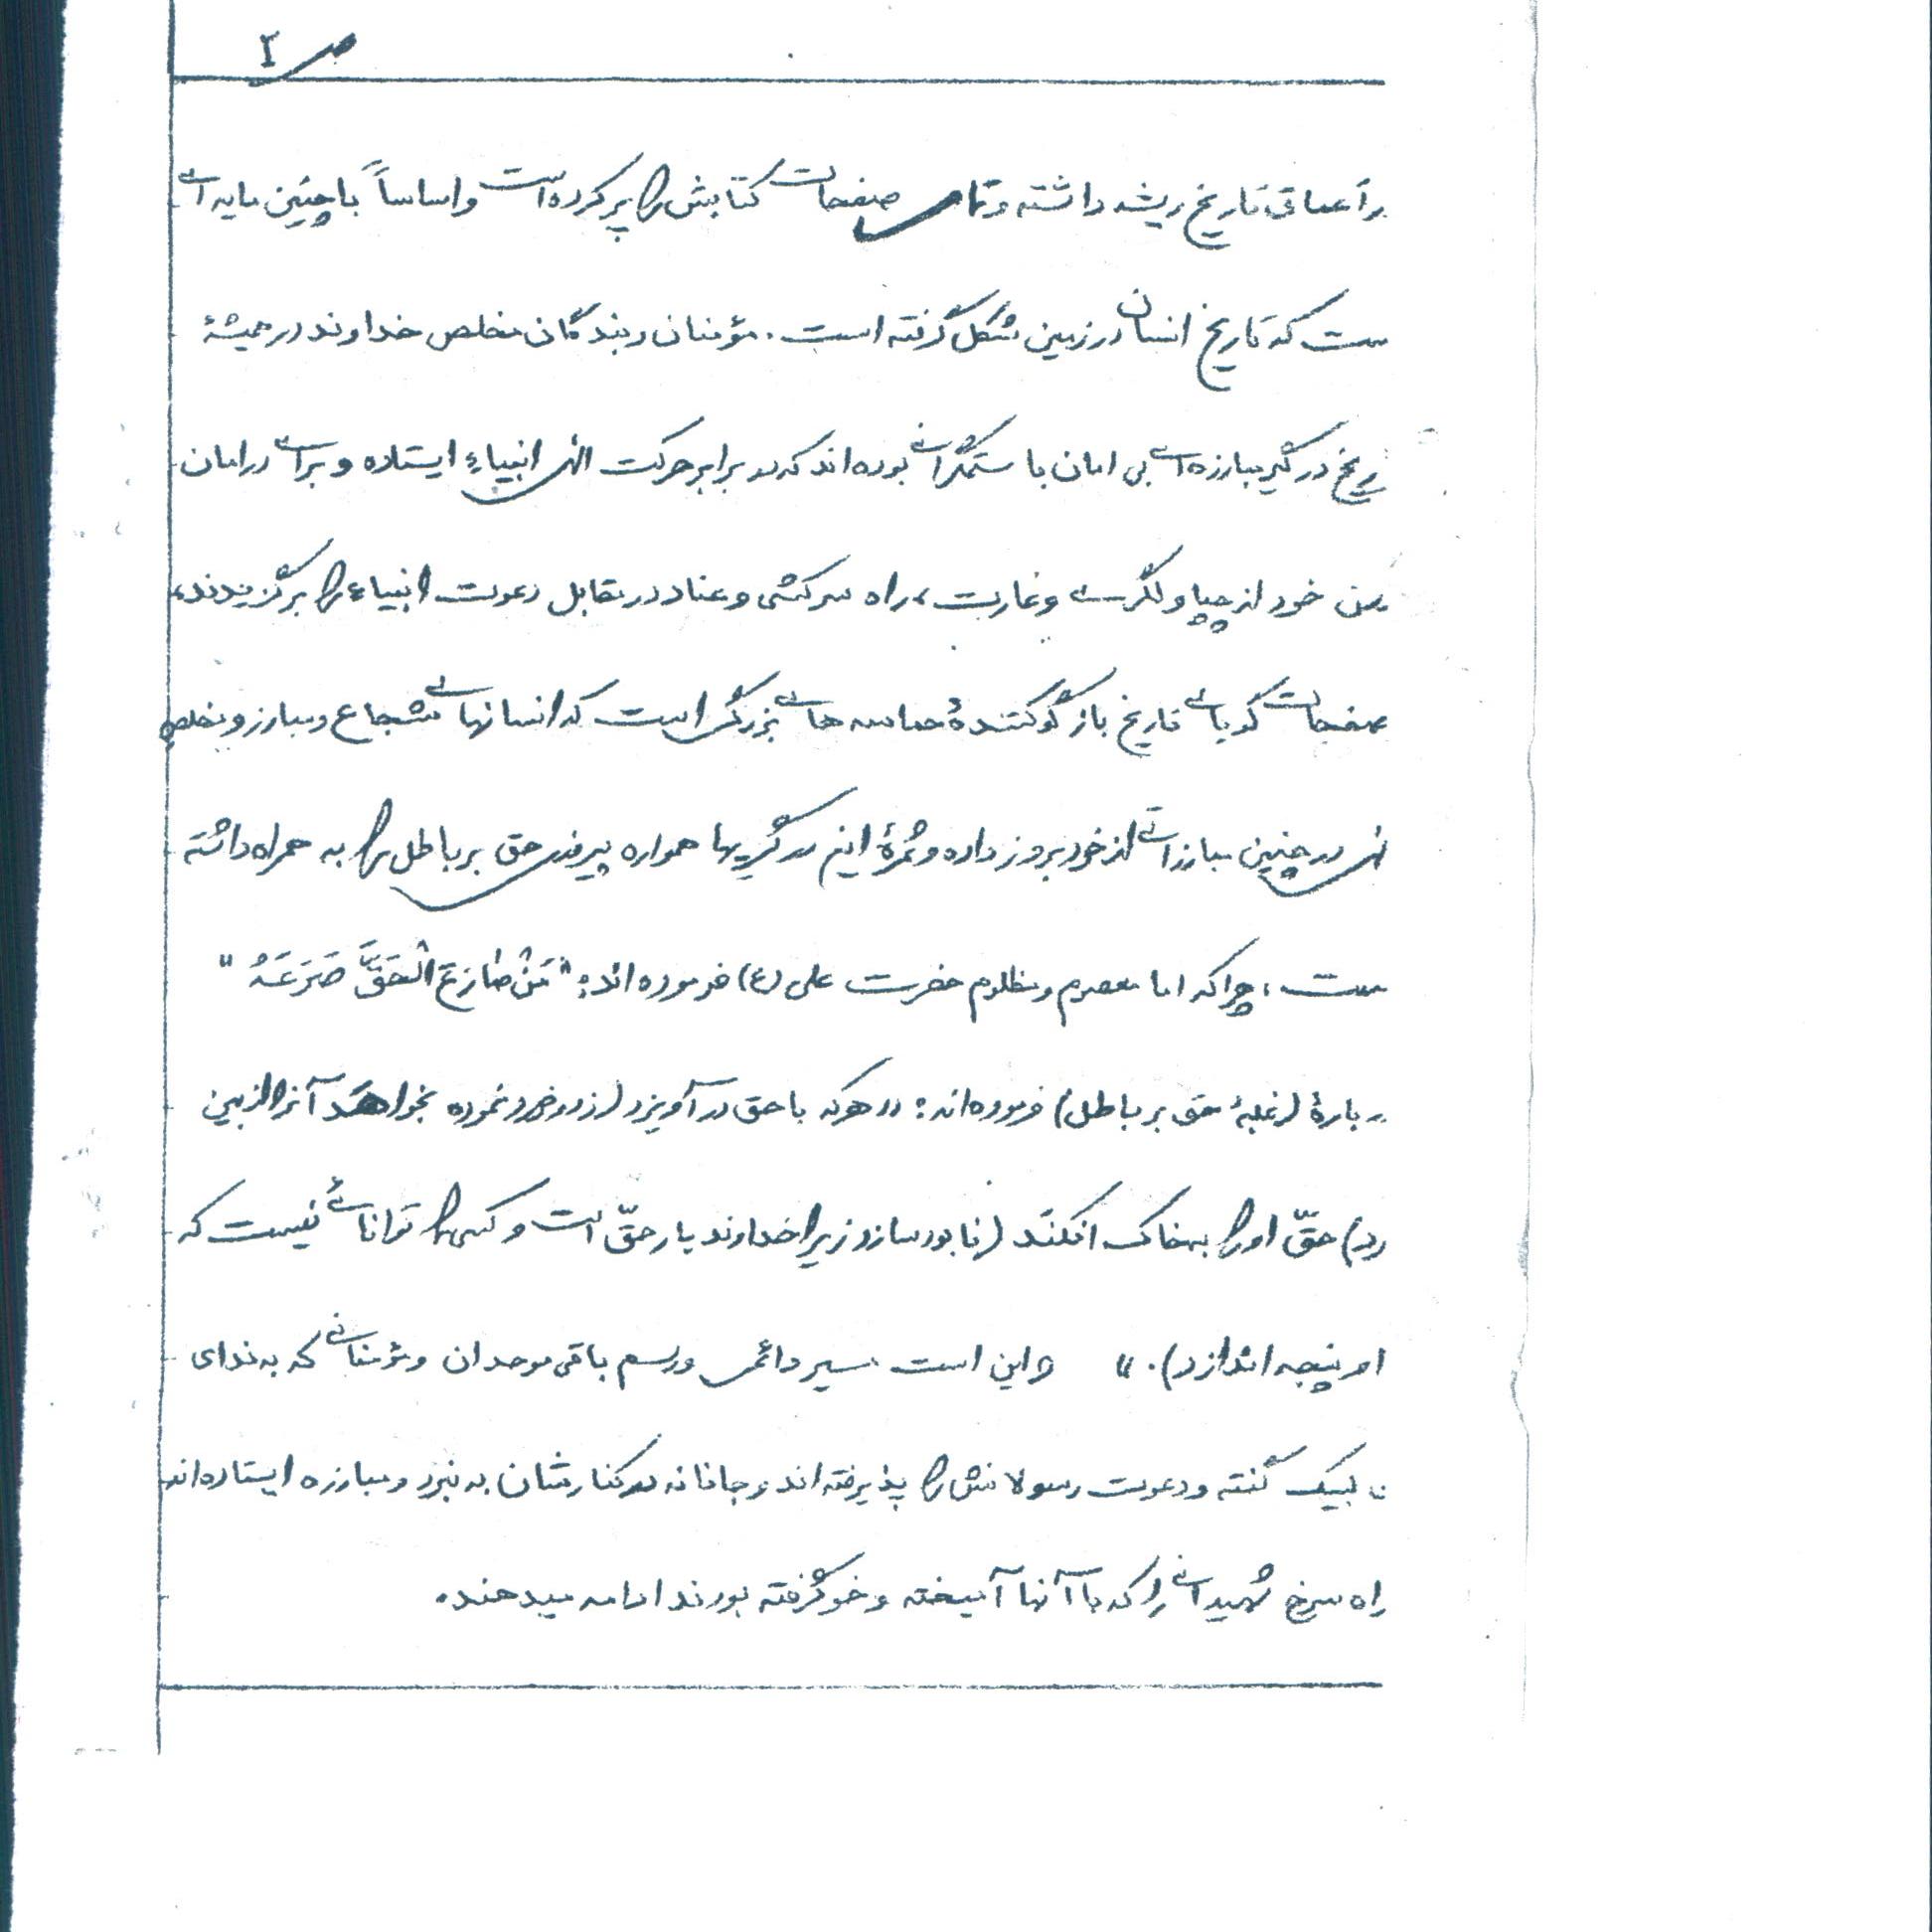 ص ۲
در اعماق تاریخ ریشه داشته و تمامی صفحات کتابش را پر کرده است و اساساً با چنین مایه ای
ست که تاریخ انسان در زمین شکل گرفته است. مؤمنان و بندگان مخلص خداوند در همیشهٔ
ریخ درگیر مبارزه ای بی امان با ستمگرانی بوده اند که در برابر حرکت الهی انبیاء ایستاده و برای در امان
خود از چپاولگری و غارت، راه سرکشی و عناد در مقابل دعوت انبیاء را برگزیدند،
صفحات گویای تاریخ بازگو کنندهٔ حماسه های بزرگی است که انسانهای شجاع و مبارز و مخلص
در چنین مبارزاتی از خود بروز داده و ثمرهٔ این درگیریها همواره پیروزی حق بر باطل را به همراه داشته
ست، چرا که اما معصوم و مظلوم حضرت علی (ع) فرموده اند: "مَنْ صٰارَعَ الْحَقَّ صَرَعَهُ"
ر بارهٔ (غلبهٔ حق بر باطل) فرموده اند: «هرکه با حق در آویزد (زد و خورد نموده بخواهد آنرا از بین
رد) حقّ او را بخاک افکند (نابود سازد زیرا خداوند یار حقّ است و کسی را توانائی نیست که
او پنجه اندازد).» و این است سیر دائمی و رسم باقی موحدان و مؤمنانی که به ندای
لبیک گفته و دعوت رسولانش را پذیرفته اند و جانانه در کنارشان به نبرد و مبارزه ایستاده اند
راه سرخ شهیدانی را که با آنها آمیخته و خو گرفته بودند ادامه میدهند.